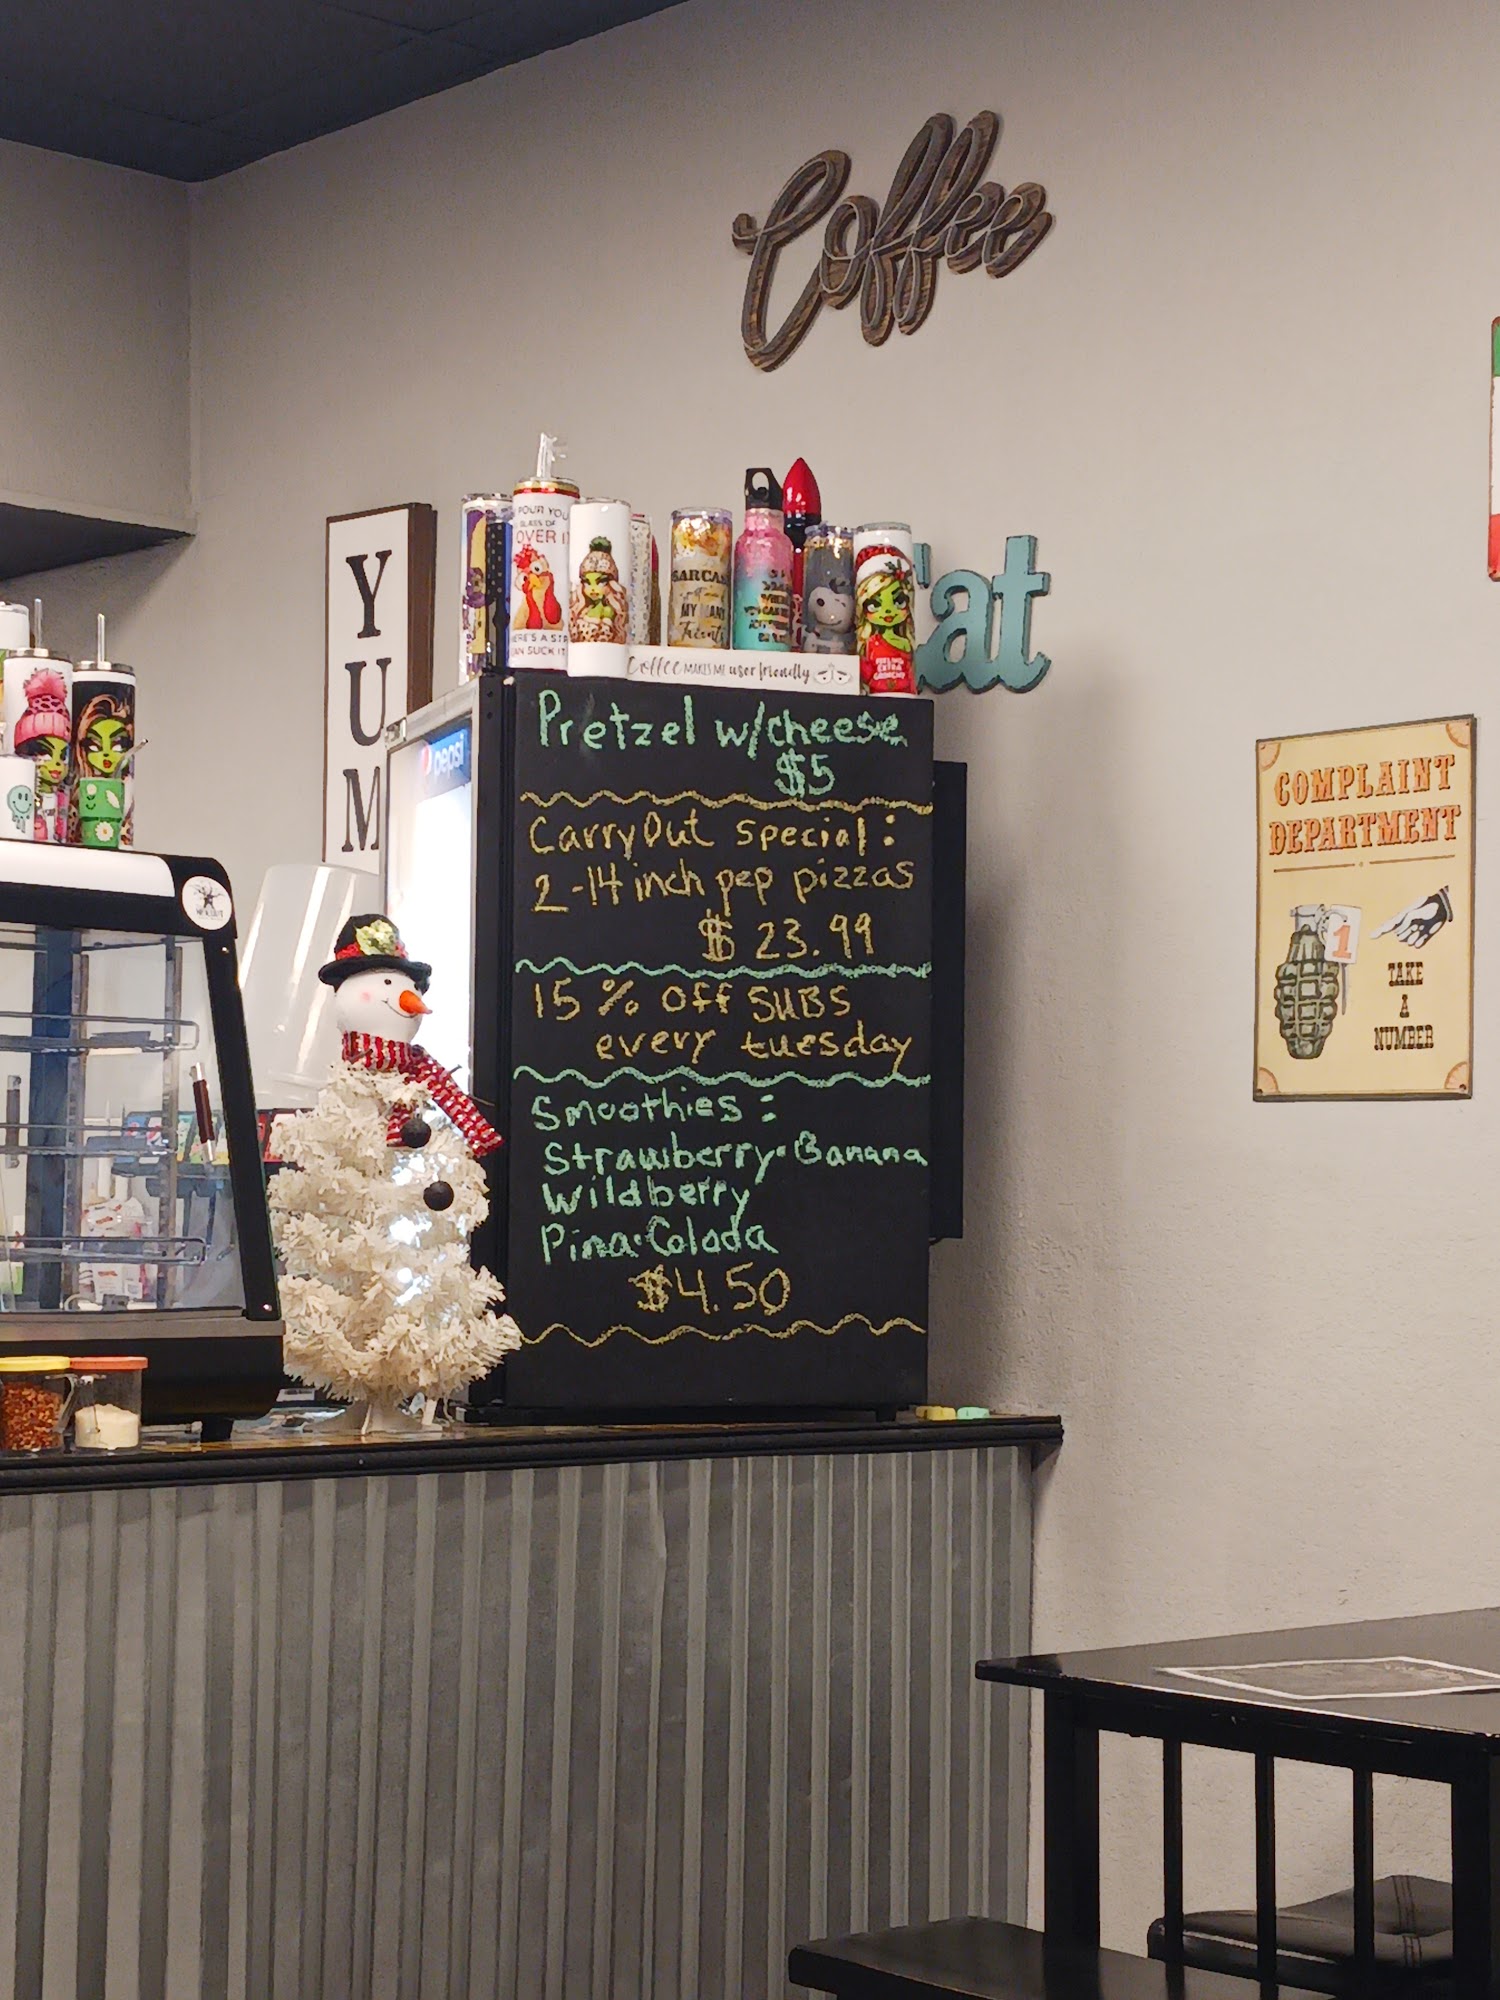 Coffee
YUM
'at
POUR YOU
GLASS OF
OVER I
HERE'S A STR
AN SUCK IT
SARCAS
MY MAN
Talents
Coffee MAKES ME user friendly
pepsi
Pretzel w/cheese
$5
CarryOut special:
2-14 inch pep pizzas
$23.99
15% Off SUBS
every tuesday
Smoothies:
Strawberry-Banana
Wildberry
Pina-Colada
$4.50
COMPLAINT
DEPARTMENT
1
TAKE
A
NUMBER